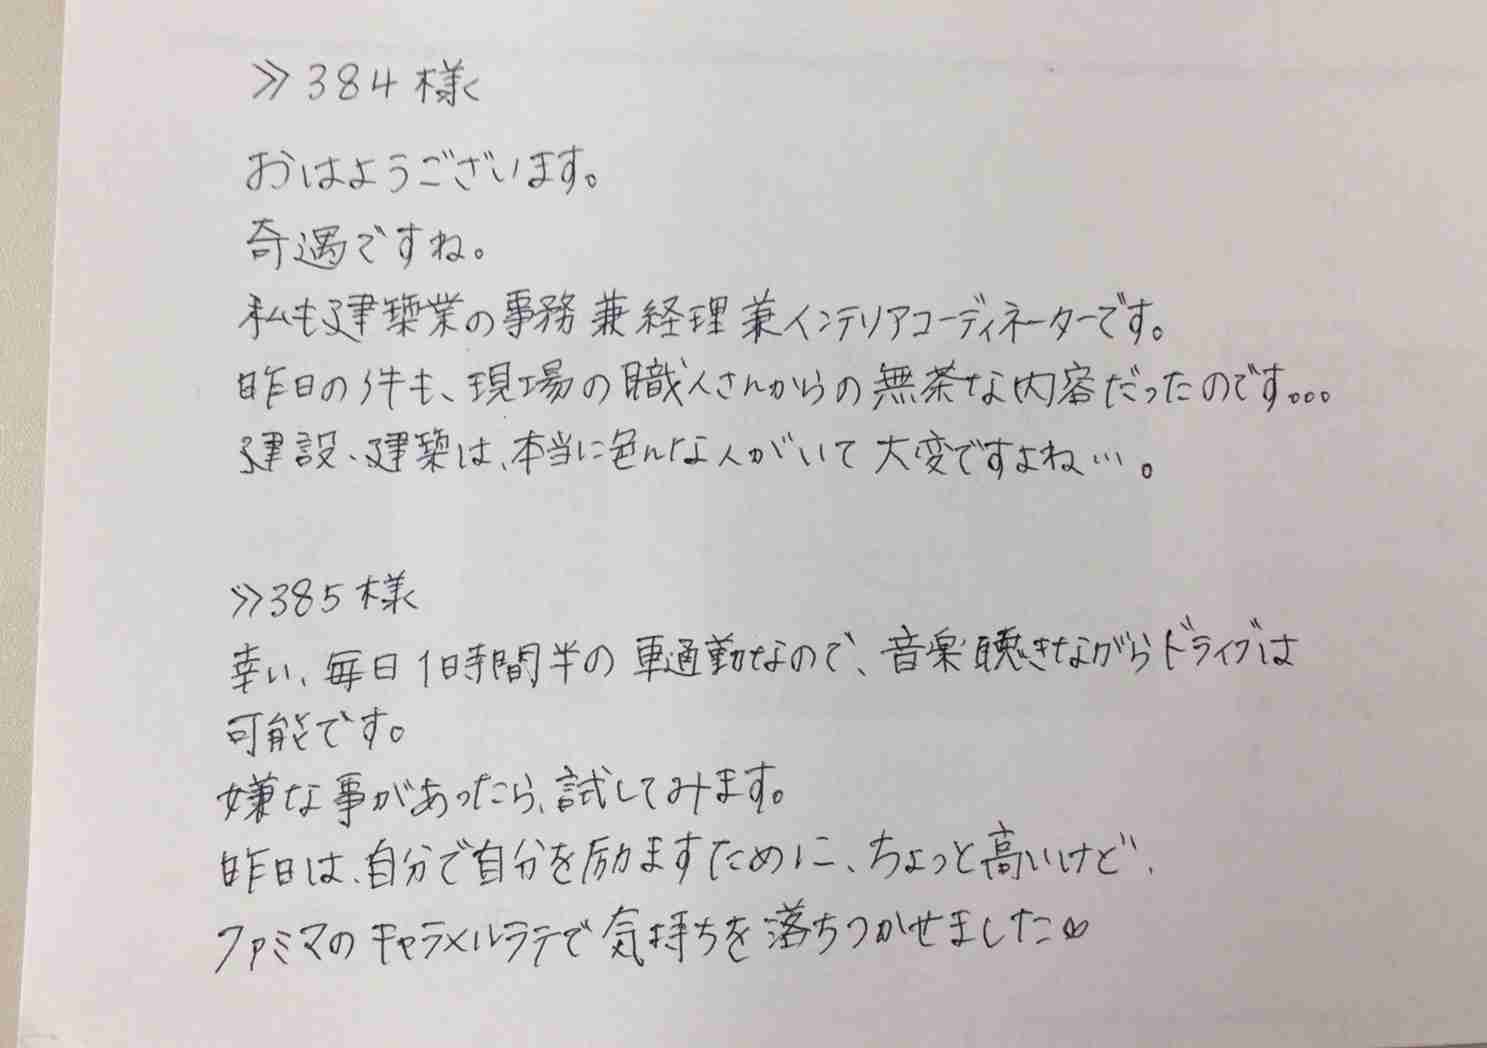 ≫384様
おはようございます。
奇遇ですね。
私も建築業の事務兼経理兼インテリアコーディネーターです。
昨日の件も、現場の職人さんからの無茶な内容だったのです。。。
建設、建築は、本当に色んな人がいて大変ですよね…。
≫385様
幸い、毎日1時間半の車通勤なので、音楽聴きながらドライブは
可能です。
嫌な事があったら、試してみます。
昨日は、自分で自分を励ますために、ちょっと高いけど、
ファミマのキャラメルラテで気持ちを落ちつかせました♡